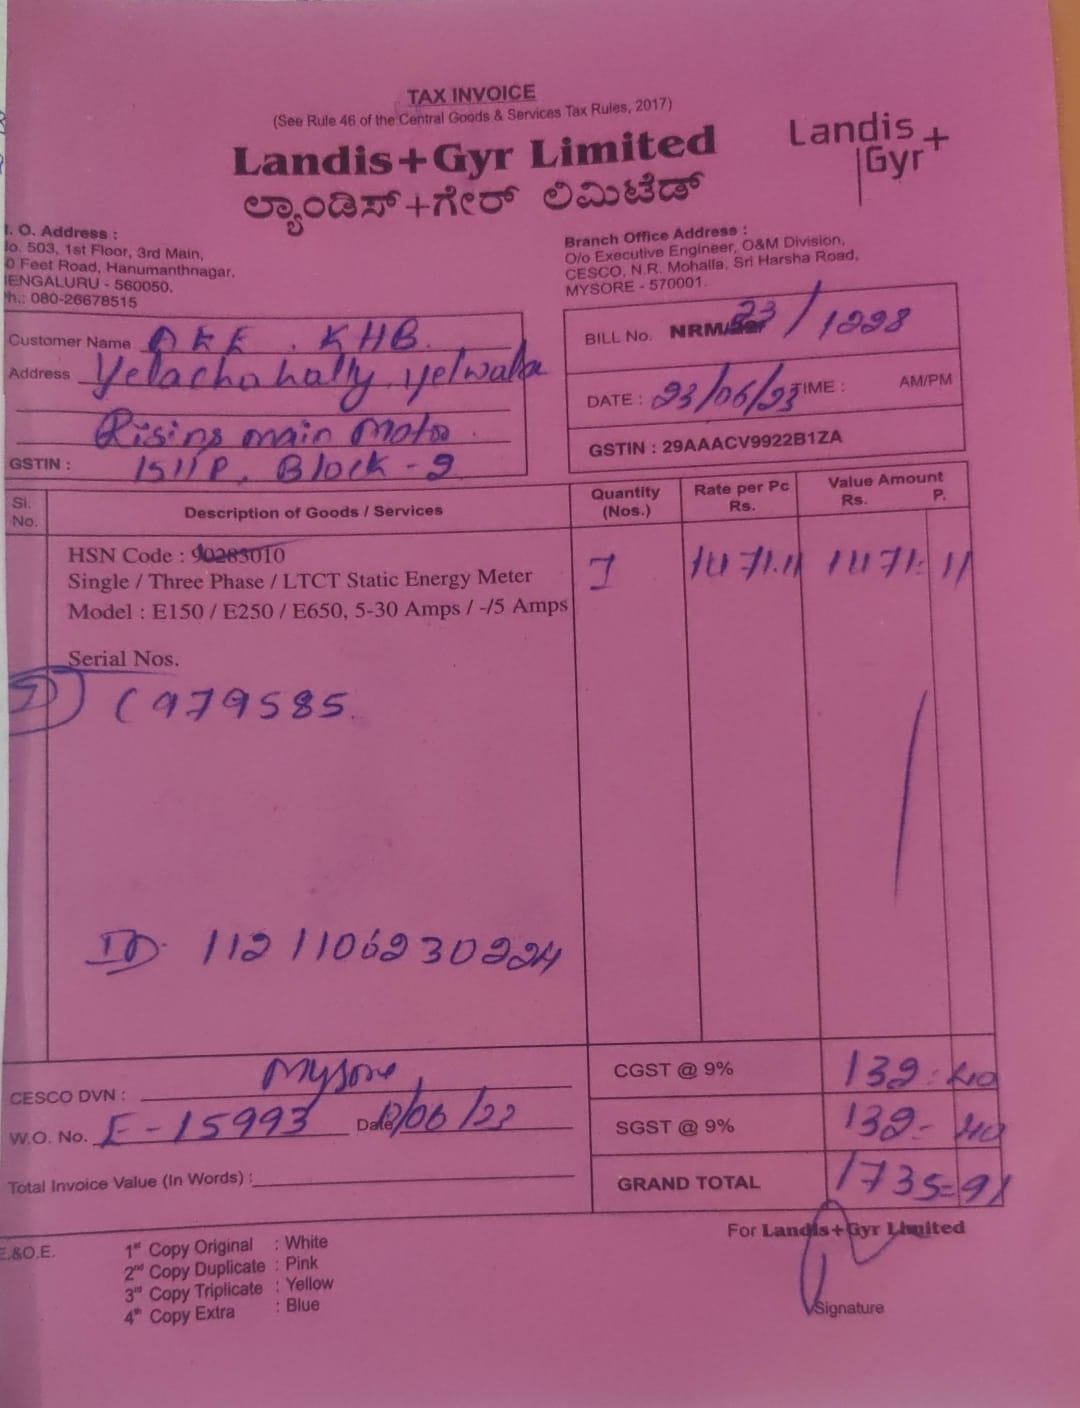 TAX INVOICE
(See Rule 46 of the Central Goods & Services Tax Rules, 2017)
Landis+Gyr Limited
ಲ್ಯಾಂಡಿಸ್+ಗೇರ್ ಲಿಮಿಟೆಡ್
Landis
Gyr+
. O. Address :
o. 503, 1st Floor, 3rd Main,
0 Feet Road, Hanumanthnagar,
ENGALURU - 560050.
h.: 080-26678515
Branch Office Address :
O/o Executive Engineer, O&M Division,
CESCO, N.R. Mohalla, Sri Harsha Road,
MYSORE - 570001.
Customer Name AEE . KHB.
Address Yelachahally, Yelwala
Rising main Motor
GSTIN : 15HP, Block - 2
BILL No. NRM/ 23/1228
DATE : 23/06/23 TIME : AM/PM
GSTIN : 29AAACV9922B1ZA
Sl. No. Description of Goods / Services Quantity (Nos.) Rate per Pc Rs. Value Amount Rs. P.
HSN Code : 90283010
Single / Three Phase / LTCT Static Energy Meter 1 1471.11 1471. 11
Model : E150 / E250 / E650, 5-30 Amps / -/5 Amps
Serial Nos.
979585
ID 112110623022​4
CESCO DVN : Mysore
W.O. No. E-15993 Date /06/23
Total Invoice Value (In Words) :
CGST @ 9% 132=40
SGST @ 9% 132=40
GRAND TOTAL 1735=91
E.&O.E.
1st Copy Original : White
2nd Copy Duplicate : Pink
3rd Copy Triplicate : Yellow
4th Copy Extra : Blue
For Landis+Gyr Limited
Signature